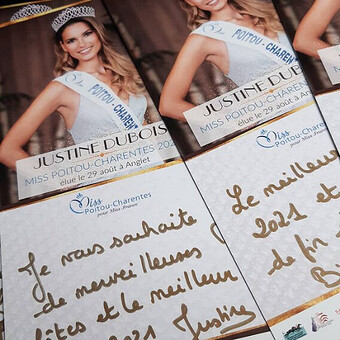 POITOU-CHARENTES
JUSTINE DUBOIS
MISS POITOU-CHARENTES 202
élue le 29 août à Anglet
Miss
Poitou-Charentes
pour Miss France
Je vous souhaite
de merveilleuses
fêtes et le meilleur
2021 Justine
POITOU-CHAREN
JUSTINE DUBO
MISS POITOU-CHARENTES
élue le 29 août à Angle
Miss
Poitou-Charen
pour Miss France
Le meilleur
2021 et
de fin
JU
MISS